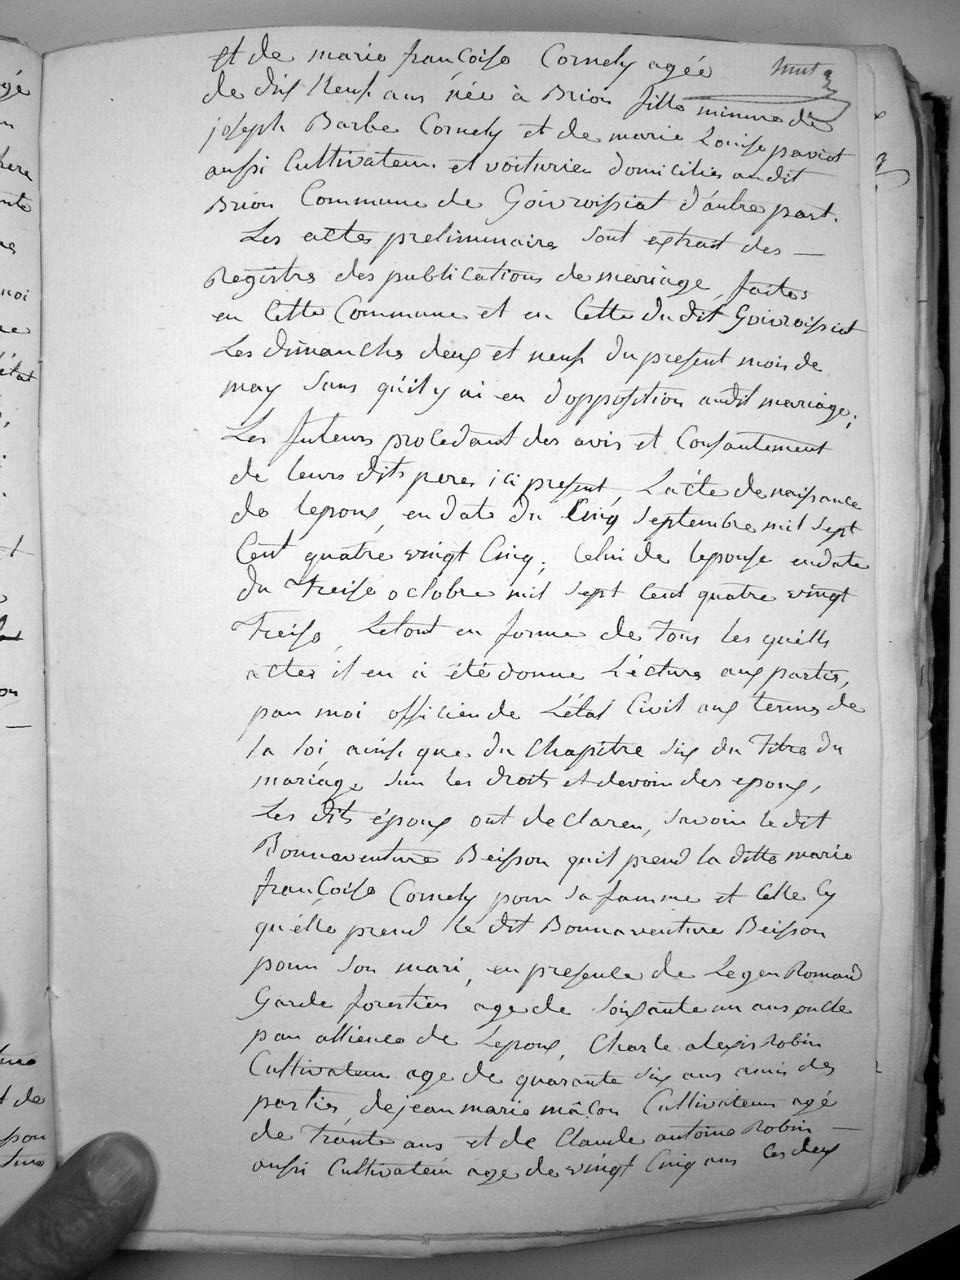 huit
et de marie françoise Cornely agée
de dix Neuf ans née à Brion fille mineure de
joseph Barbe Cornely et de marie Louise paviot
aussi Cultivateur et voiturier domiciliés audit
Brion Commune de Goivroissiat d'autre part.
Les actes preliminaire sont extrait des —
Registres des publications de mariage, faites
en Cette Commune et en Cette du dit Goivroissiat
Les dimanches deux et neuf du present mois de
may sans qu'il y ai eu d'opposition audit mariage,
Les futeurs procedant des avis et Consantement
de leurs dits peres ici present, L'acte de naissance
de lepoux, en date du Cinq septembre mil sept
Cent quatre vingt Cinq, Celui de lepouse en date
du Treise octobre mil sept Cent quatre vingt
Treise, Le tout en forme de Tous les quells
actes il en à été donné Lécture aux parties,
par moi officier de L'état Civil aux termes de
la loi, ainsi que du Chapitre six du Titre du
mariage sur les droits et devoir des epoux,
Les dits époux ont declaren, savoir le dit
Bonnaventure Beisson quil prend la ditte marie
françoise Cornely pour sa famme et Celle Cy
qu'élle prend le dit Bonnaventure Beisson
pour son mari, en presence de Leger Romand
Garde forestier age de soixante un ans oncle
par allience de Lepoux, Charle alexis Robin
Cultivateur age de quarante six ans amis des
parties, de jean marie mâcon Cultivateur agé
de trante ans et de Claude antoine Robin —
aussi Cultivateur age de vingt Cinq ans Les deux